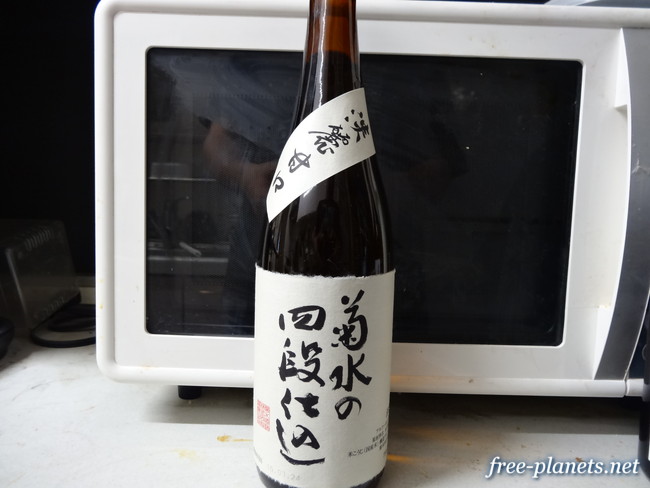 淡麗甘口
菊水の
四段仕込
free-planets.net